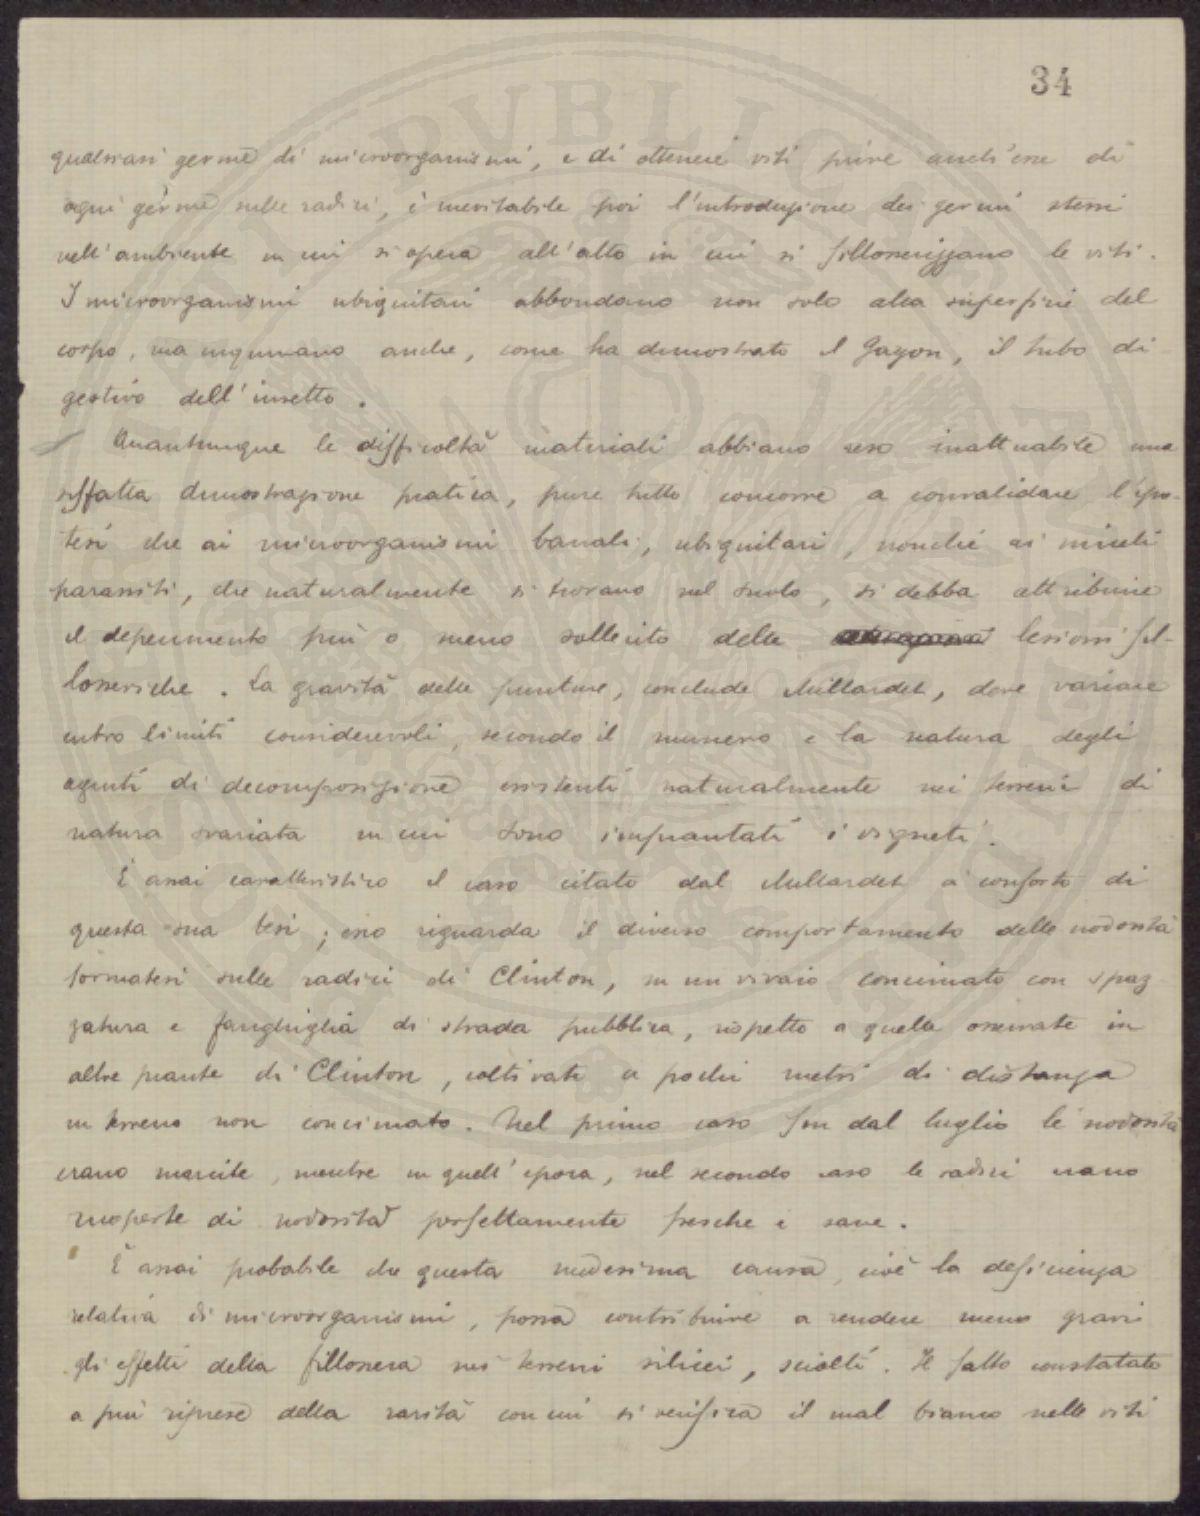 34
qualsiasi germe di microorganismi, e di ottenere viti prive anch'esse di
ogni germe sulle radici, è inevitabile poi l'introduzione dei germi stessi
nell'ambiente in cui si opera all'atto in cui si fillosserizzano le viti.
I microorganismi ubiquitari abbondano non solo alla superficie del
corpo, ma inquinano anche, come ha dimostrato il Gayon, il tubo di
gestivo dell'insetto.
Quantunque le difficoltà materiali abbiano reso inattuabile una
siffatta dimostrazione pratica, pure tutto concorre a convalidare l'ipo-
tesi che ai microorganismi banali, ubiquitari, nonchè ai miceti
parassiti, che naturalmente si trovano nel suolo, si debba attribuire
il deperimento più o meno sollecito delle lesioni fil-
losseriche. La gravità delle punture, conclude Millardet, deve variare
entro limiti considerevoli, secondo il numero e la natura degli
agenti di decomposizione esistenti naturalmente nei terreni di
natura svariata in cui sono impiantati i vigneti.
È assai caratteristico il caso citato dal Millardet a conforto di
questa sua tesi; esso riguarda il diverso comportamento delle nodosità
formatesi sulle radici di Clinton, in un vivaio concimato con spaz
zatura e fanghiglia di strada pubblica, rispetto a quelle osservate in
altre piante di Clinton, coltivate a pochi metri di distanza
in terreno non concimato. Nel primo caso fin dal luglio le nodosità
erano marcite, mentre in quell'epoca, nel secondo caso le radici erano
ricoperte di nodosità perfettamente fresche e sane.
È assai probabile che questa medesima causa, cioè la deficienza
relativa di microorganismi, possa contribuire a rendere meno gravi
gli effetti della fillossera nei terreni silicei, sciolti. Il fatto constatato
a più riprese della rarità con cui si verifica il mal bianco nelle viti